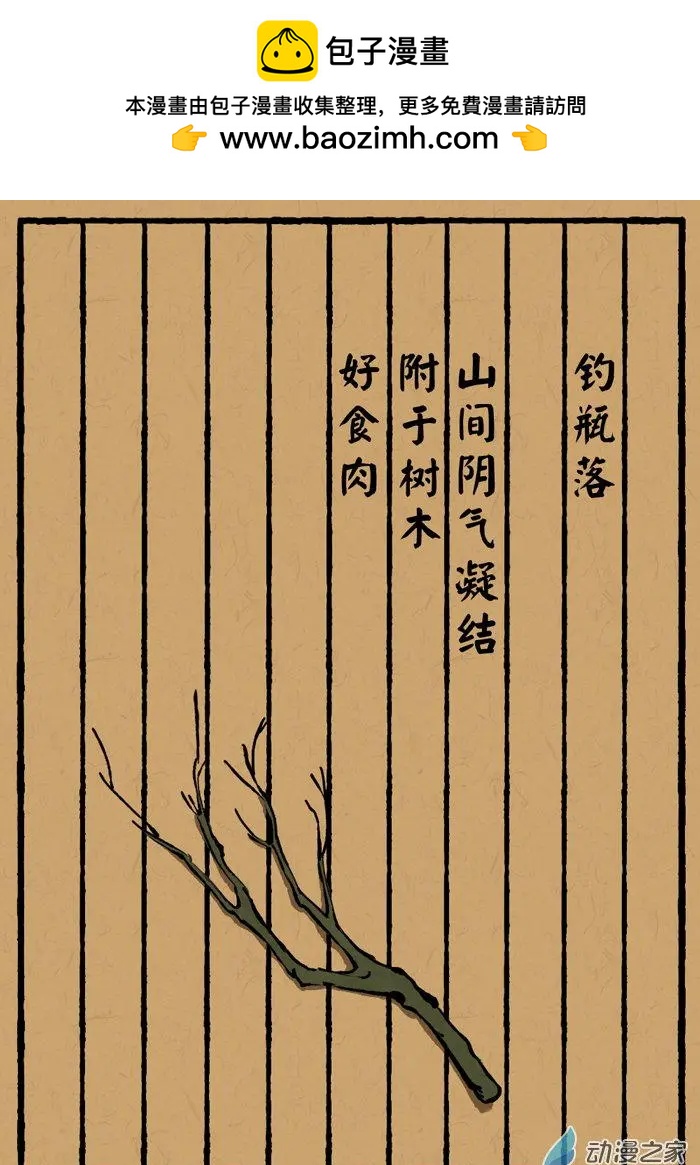 包子漫畫
本漫畫由包子漫畫收集整理，更多免費漫畫請訪問
👉 www.baozimh.com 👈
钓瓶落
山间阴气凝结
附于树木
好食肉
动漫之家